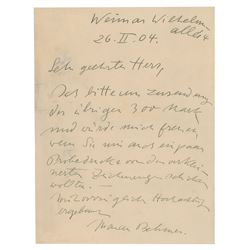 Weimar Wilhelm-
allee 4
26. II. 04.
Sehr geehrter Herr,
Ich bitte um Zusendung
der übrigen 300 Mark
und würde mich freuen,
wenn Sie mir noch ein paar
Probedrucke von den verklei-
nerten Zeichnungen schicken
wollten. —
Mit vorzüglicher Hochachtung
ergebenst
Marcus Behmer.